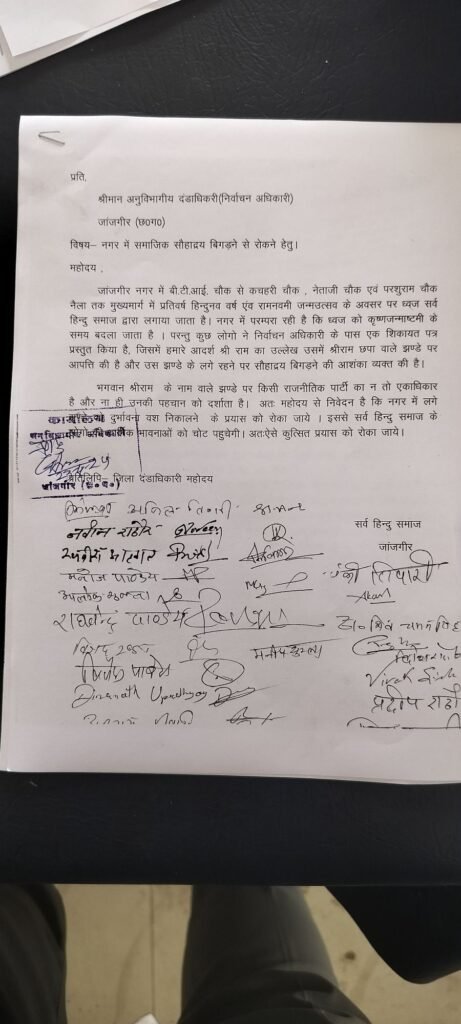 प्रति,
श्रीमान अनुविभागीय दंडाधिकरी(निर्वाचन अधिकारी)
जांजगीर (छ०ग०)
विषय– नगर में समाजिक सौहाद्रय बिगड़ने से रोकने हेतु।
महोदय ,
जांजगीर नगर में बी.टी.आई. चौक से कचहरी चौक , नेताजी चौक एवं परशुराम चौक
नैला तक मुख्यमार्ग में प्रतिवर्ष हिन्दुनव वर्ष एंव रामनवमी जन्मउत्सव के अवसर पर ध्वज सर्व
हिन्दु समाज द्वारा लगाया जाता है। नगर में परम्परा रही है कि ध्वज को कृष्णजन्माष्टमी के
समय बदला जाता है । परन्तु कुछ लोगो ने निर्वाचन अधिकारी के पास एक शिकायत पत्र
प्रस्तुत किया है, जिसमें हमारे आदर्श श्री राम का उल्लेख उसमें श्रीराम छपा वाले झण्डे पर
आपत्ति की है और उस झण्डे के लगे रहने पर सौहाद्रय बिगड़ने की आशंका व्यक्त की है।
भगवान श्रीराम के नाम वाले झण्डे पर किसी राजनीतिक पार्टी का न तो एकाधिकार
है और ना ही उनकी पहचान को दर्शाता है। अतः महोदय से निवेदन है कि नगर में लगे
को दुर्भावना वश निकालने के प्रयास को रोका जाये । इससे सर्व हिन्दु समाज के
भावनाओं को चोट पहुचेगी। अतःऐसे कुत्सित प्रयास को रोका जाये।
कार्यालय
जांजगीर (छ.ग.)
प्रतिलिपि– जिला दंडाधिकारी महोदय
सर्व हिन्दु समाज
जांजगीर
अनिल तिवारी
नवीन राठौर
मनोज पाण्डेय
राघवेन्द्र पाण्डेय
मनीष शुक्ला
Dinanath Upadhyay
Vivek Singh
प्रदीप राठौ